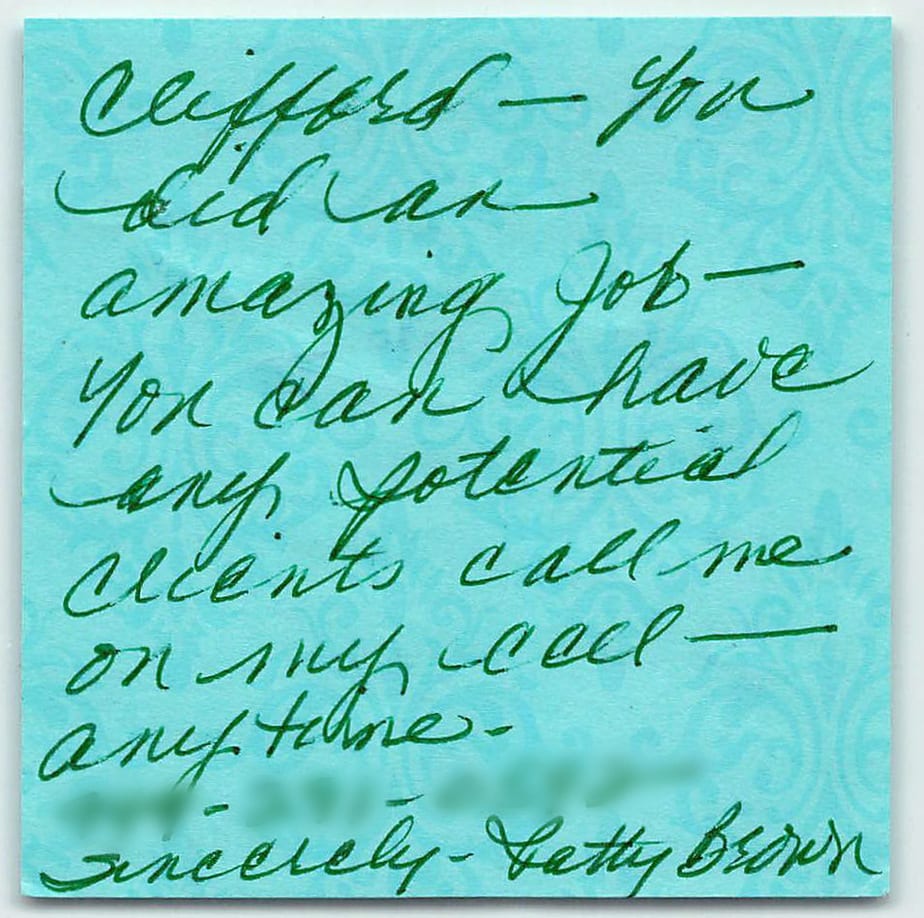 Clifford — You
did an
amazing Job —
You can have
any potential
clients call me
on my cell —
anytime -
sincerely - Brown